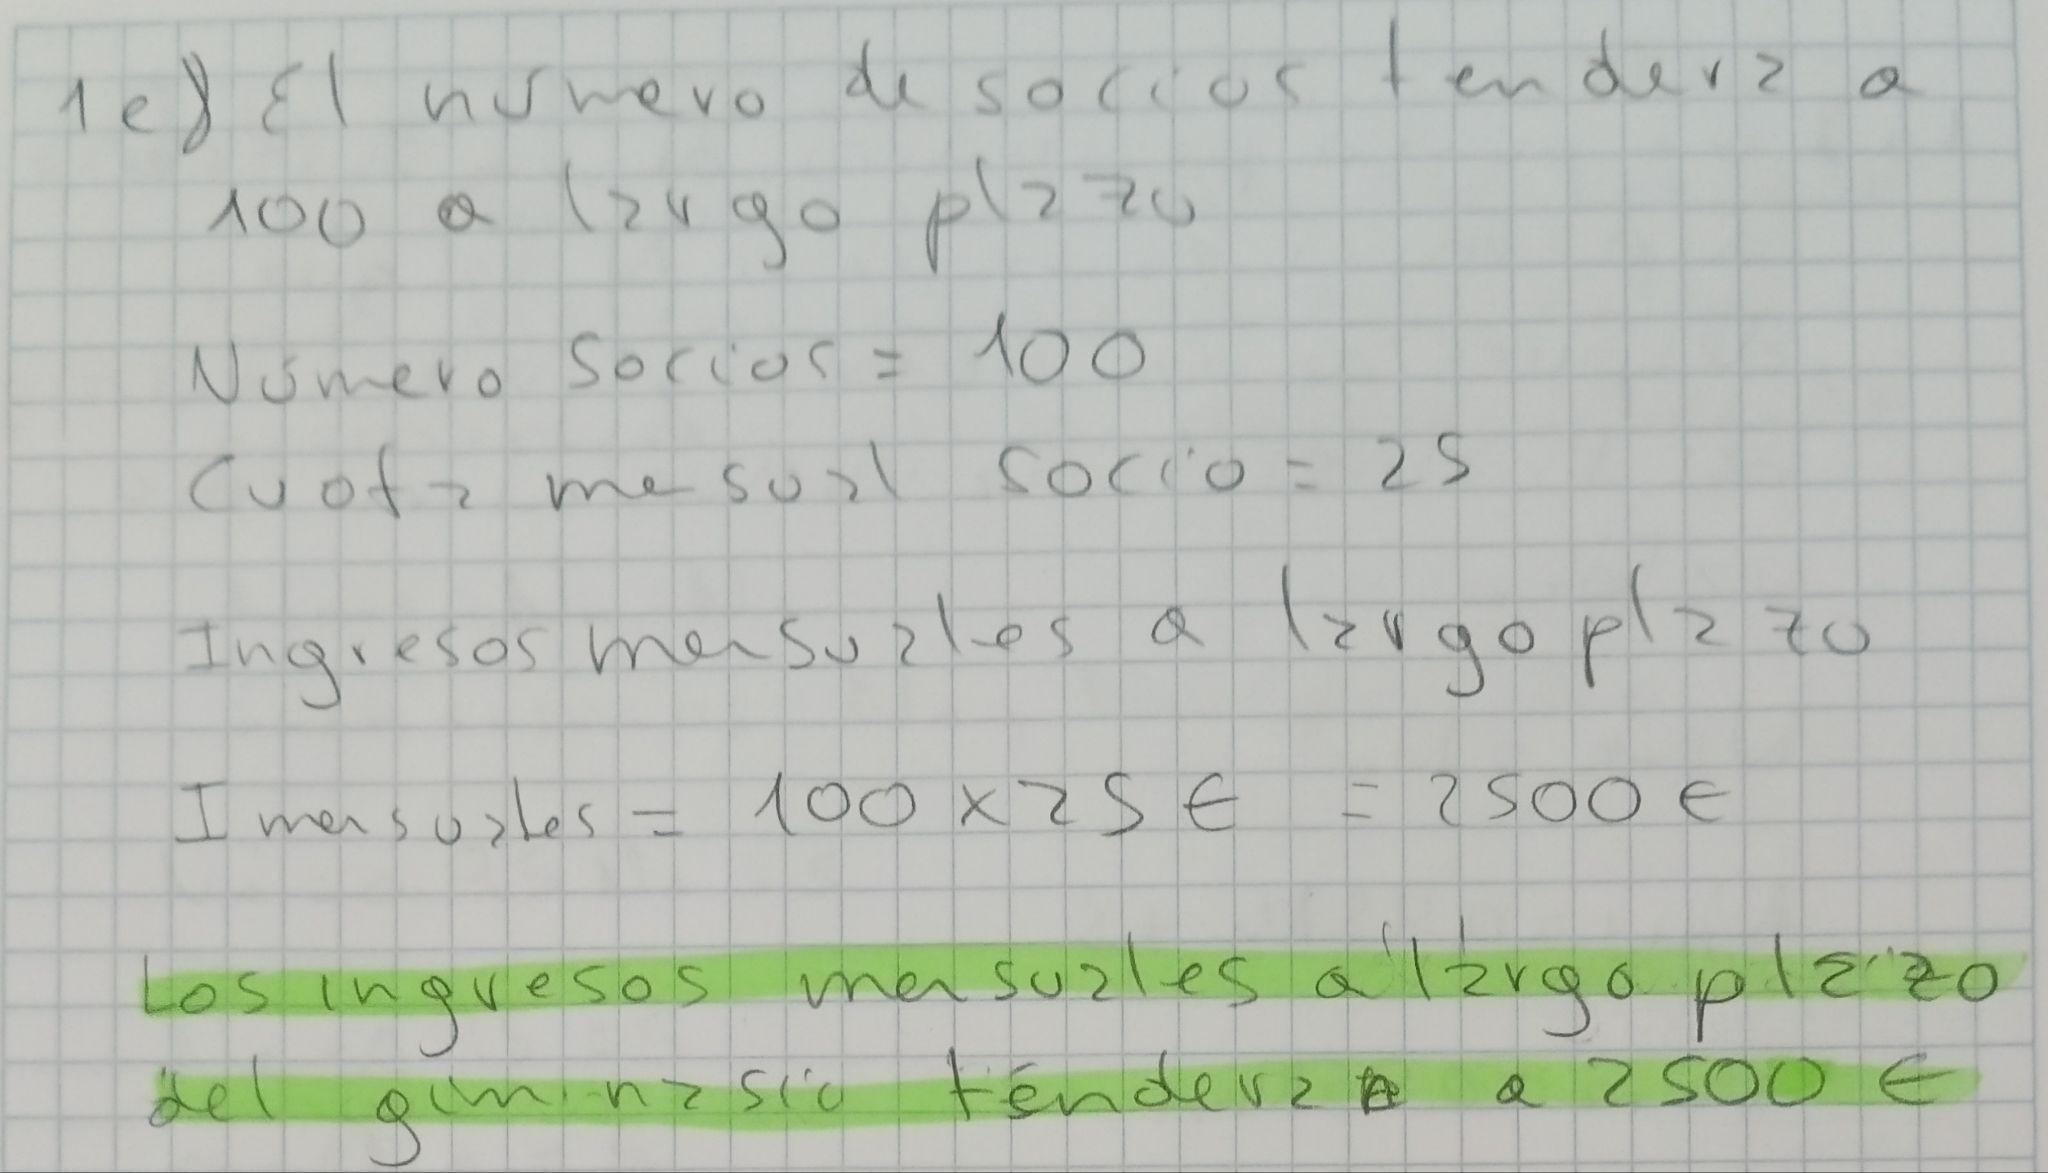 1e) El número de socios tendera a
100 a largo plazo
Número Socios = 100
Cuota mesual socio = 25
Ingresos mensuales a largo plazo
I mensuales = 100 x 25 € = 2500 €
Los ingresos mensuales a largo plazo
del giminasio tendera a 2500 €